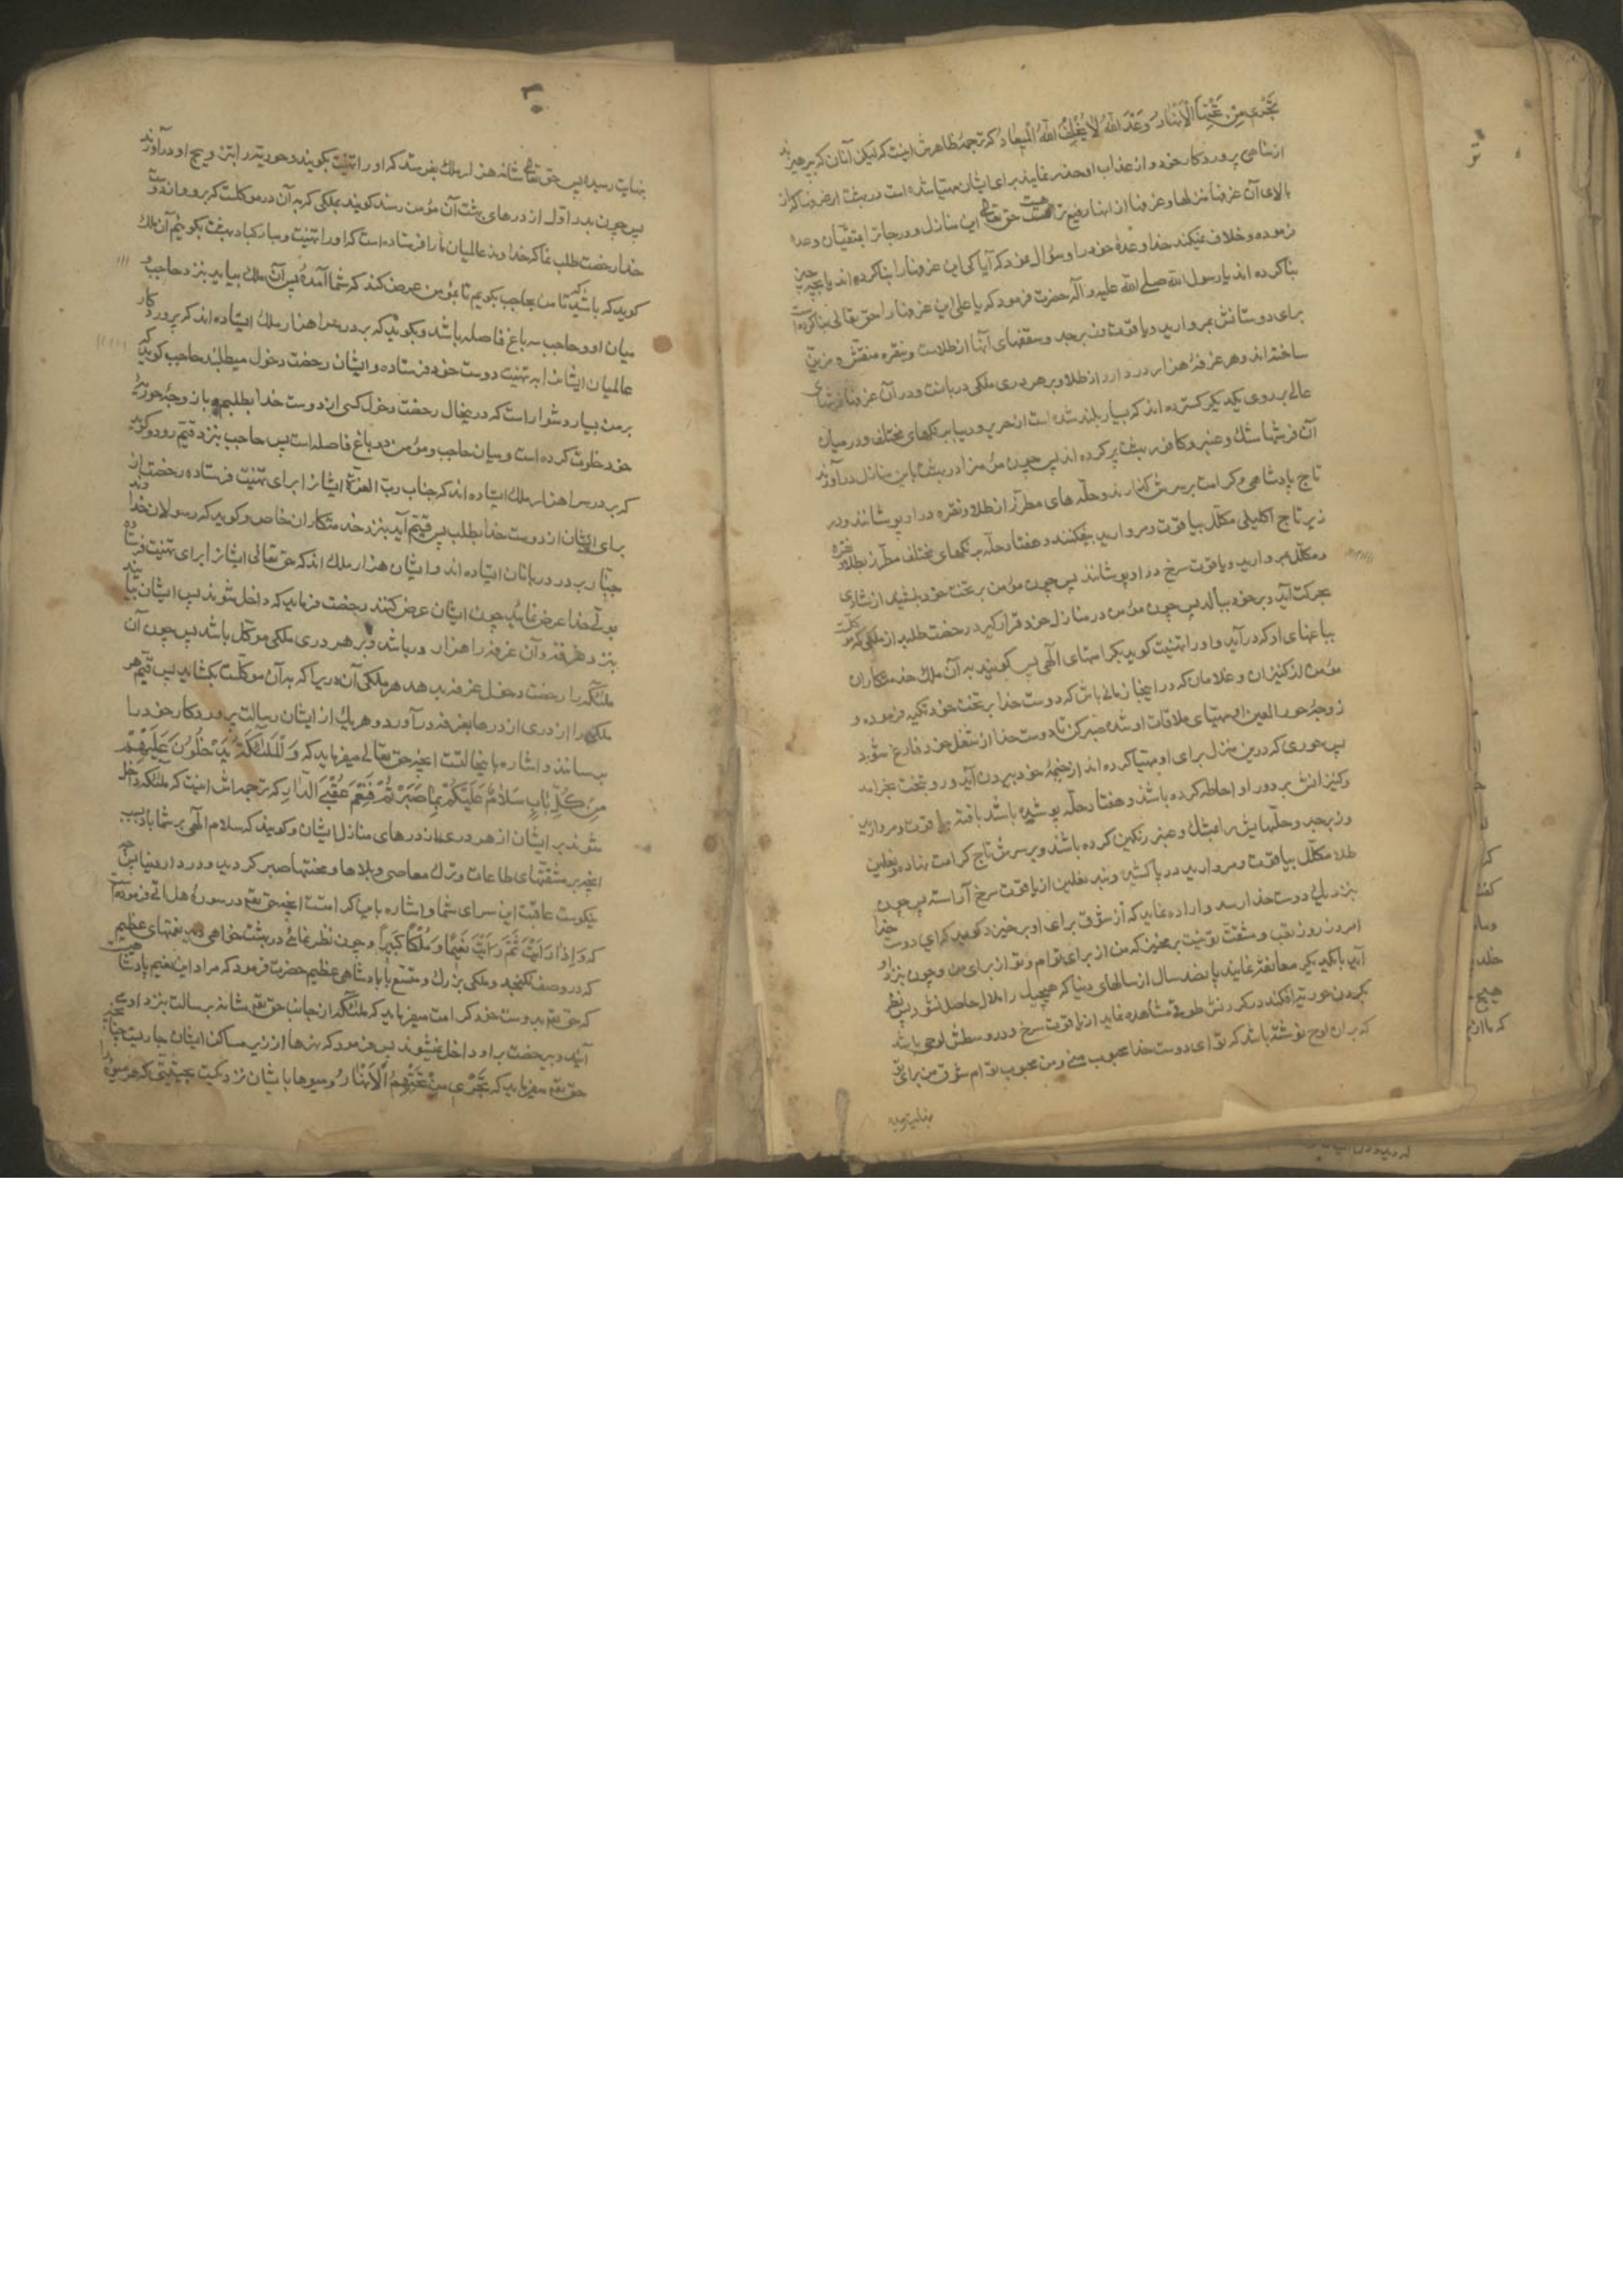 تَجْرِی مِنْ تَحْتِهَا الْاَنْهَارُ وَعْدَ اللّٰهِ لَا یُخْلِفُ اللّٰهُ الْمِیعَادَ که ترجمهٔ ظاهرش اینست که لیکن آنان که بپرهیزند
از مناهی پروردکار خود و از عذاب او حذر نمایند برای ایشان مهیا شده است در بهشت غرفها که از
بالای آن غرفها منزلها و غرفها از انها رفیع تر هست حق تعالی این منازل و درجات را بمتقیان وعده
فرموده و خلاف نمیکند خدا وعدهٔ خود را و سؤال نمود که آیا کی این غرفها را بنا کرده اند یا بچه چیز
بنا کرده اند یا رسول الله صلی الله علیه و آله حضرت فرمود که یا علی این غرفها را حق تعالی بنا کرده است
برای دوستانش بمروارید و یاقوت و زبرجد و سقفهای آنها از طلاست و بنقره منقش و مزین
ساخته اند و هر غرفهٔ هزار در دارد از طلا و بر هر دری ملکی دربانست و در آن غرفها فرشهای
عالی بر روی یکدیکر کسترده اند که بسیار بلند شده است از حریر و دیبا برنکهای مختلف و در میان
آن فرشها مشک و عنبر و کافور بهشت پر کرده اند پس چون مؤمن را در بهشت باین منازل درآورند
تاج پادشاهی و کرامت بر سرش کذارند و حلّه های مطرّز از طلا و نقره در او پوشانند و در
زیر تاج اکلیلی مکلّل بیاقوت و مروارید بیفکنند و هفتاد حلّه برنکهای مختلف مطرّز بطلا و نقره
و مکلّل بمروارید و یاقوت سرخ در او پوشانند پس چون مؤمن بر تخت خود بنشیند از شادی
بحرکت آید و بر خود ببالد پس چون مؤمن در منازل خود قرار کیرد رخصت طلبد از ملکی که موکلّست
بباغهای او که درآید و او را تهنیت کوید بکرامتهای الهی پس کویند به آن ملک خدمتکاران
مؤمن از کنیزان و غلامان که در اینجا زمانی باش که دوست خدا بر تخت خود تکیه فرموده و
زوجهٔ حور العین او مهیای ملاقات او شده صبر کن تا دوست خدا از شغل خود فارغ شود
پس حوری که درین منزل برای او مهیا کرده اند از خیمهٔ خود بیرون آید و رو بتخت بخرامد
و کنیزانش بر دور او احاطه کرده باشند و هفتاد حلّه پوشیده باشد بافته بیاقوت و مروارید
و زبرجد و حلّهایش را بمشک و عنبر رنکین کرده باشند و بر سرش تاج کرامت نهاده و نعلین
طلا مکلّل بیاقوت و مروارید در پا کشیده و بند نعلین از یاقوت سرخ آراسته پس چون
بنزدیک دوست خدا رسد و اراده نماید که از شوق برای او برخیزد کوید که ای دوست خدا
امروز روز تعب و مشقت تو نیست برمخیز که من از برای توام و تو از برای من و چون بنزد او
آید با یکدیکر معانقه نمایند پانصد سال از سالهای دنیا که هیچیک را ملال حاصل نشود پس نظر
بکردن حوریه افکند در کردنش طوقی مشاهده نماید از یاقوت سرخ و در وسطش لوحی باشد
که بران لوح نوشته باشد که تو ای دوست خدا محبوب منی و من محبوب توام شوق من برای تو
بنهایت رسیده
۱۰
بنهایت رسیده پس حق تعالی شانه هزار ملک بفرستد که او را تهنیت بکویند و حوریه را بتزویج او درآورند
پس چون بدر اول از درهای بهشت آن مؤمن رسند کویند بملکی که به آن در موکلست که برو و از دوست
خدا رخصت طلب نما که خداوند عالمیان ما را فرستاده است که او را تهنیت و مبارکباد بهشت بکوئیم آن ملک
کوید که باشید تا من بحاجب بکویم تا بمؤمن عرض کند که شما آمده اید پس آن ملک بیاید بنزد حاجب و
میان او و حاجب سه باغ فاصله باشد و بکوید که بر در سرا هزار ملک ایستاده اند که پروردکار
عالمیان ایشانرا به تهنیت دوست خود فرستاده و ایشان رخصت دخول میطلبند حاجب کوید که
بر من بسیار دشوار است که درینحال رخصت دخول کسی از دوست خدا بطلبم و با زوجهٔ حوریهٔ
خود خلوت کرده است و میان حاجب و مؤمن دو باغ فاصله است پس حاجب بنزد قیّم رود و کوید
که بر در سرا هزار ملک ایستاده اند که جناب ربّ العزّة ایشانرا برای تهنیت فرستاده رخصت از
برای ایشان از دوست خدا بطلب پس قیّم آید بنزد خدمتکاران خاص و کوید که رسولان خداوند
جبّار بر در دربانان ایستاده اند و ایشان هزار ملک اند که حق تعالی ایشانرا برای تهنیت فرستاده
بولّی خدا عرض نمائید چون ایشان عرض کنند رخصت فرماید که داخل شوند پس ایشان بیایند
بنزد غرفه و آن غرفه را هزار در باشد و بر هر دری ملکی موکّل باشد پس چون آن
ملئکه را رخصت دخول غرفه بدهد هر ملکی آن دریرا که به آن موکّلست بکشاید پس قیّم هر
ملکی را از دری از درها بغرفه درآورد و هر یک از ایشان رسالت پروردکار خود را
برسانند و اشاره باینحالتست اینچه حق تعالی میفرماید که وَالْمَلٰئِکَةُ یَدْخُلُونَ عَلَیْهِمْ
مِنْ کُلِّ بَابٍ سَلَامٌ عَلَیْکُمْ بِمَا صَبَرْتُمْ فَنِعْمَ عُقْبَی الدَّارِ که ترجمه اش اینست که ملئکه داخل
میشوند بر ایشان از هر دری از درهای منازل ایشان و کویند که سلام الهی بر شما باد بسبب
انچه بر مشقتهای طاعات و ترک معاصی و بلاها و محنتها صبر کردید در دار دنیا پس چه
نیکوست عاقبت این سرای شما و اشاره باین کرامتست انچه حق تعم در سورهٔ هل اتی فرموده است
که وَاِذَا رَاَیْتَ ثَمَّ رَاَیْتَ نَعِیمًا وَ مُلْکًا کَبِیرًا و چون نظر نمائی در بهشت خواهی دید نعمتهای عظیم
که در وصف نکنجد و ملکی بزرک و متسع با پادشاهی عظیم حضرت فرمود که مراد این نعیم پادشاهیست
که حق تعم بدوست خود کرامت میفرماید که ملئکه از جانب حق تعم شانه برسالت بنزد او می
آیند و بی رخصت بر او داخل نمیشوند پس فرمود که نهرها از زیر مساکن ایشان جاریست چنانچه
حق تعم میفرماید که تَجْرِی مِنْ تَحْتِهِمُ الْاَنْهَارُ و میوها بایشان نزدیکست بحیثیتی که هر میوهٔ را